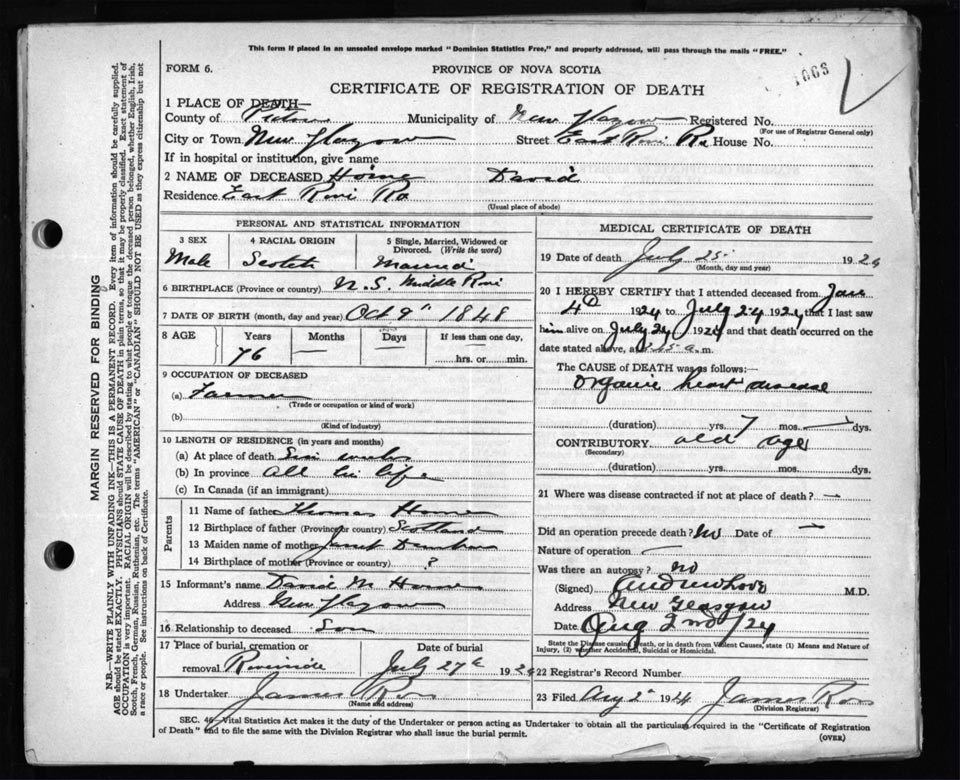 This form if placed in an unsealed envelope marked "Dominion Statistics Free," and properly addressed, will pass through the mails "FREE."
FORM 6.
PROVINCE OF NOVA SCOTIA
1663
CERTIFICATE OF REGISTRATION OF DEATH
1 PLACE OF DEATH—
County of Pictou Municipality of New Glasgow Registered No.
(For use of Registrar General only)
City or Town New Glasgow Street East River Rd House No.
If in hospital or institution, give name
2 NAME OF DECEASED Horne David
Residence East River Rd
(Usual place of abode)
PERSONAL AND STATISTICAL INFORMATION
3 SEX 4 RACIAL ORIGIN 5 Single, Married, Widowed or Divorced. (Write the word)
Male Scotch Married
6 BIRTHPLACE (Province or country) N.S. Middle River
7 DATE OF BIRTH (month, day and year) Oct 9th 1848
8 AGE Years Months Days If less than one day,
76 — — hrs. or min.
9 OCCUPATION OF DECEASED
(a) Farmer
(Trade or occupation or kind of work)
(b)
(Kind of industry)
10 LENGTH OF RESIDENCE (in years and months)
(a) At place of death
(b) In province All his life
(c) In Canada (if an immigrant)
Parents
11 Name of father Thomas Horne
12 Birthplace of father (Province or country) Scotland
13 Maiden name of mother Janet
14 Birthplace of mother (Province or country) ?
15 Informant's name David M Horne
Address New Glasgow
16 Relationship to deceased Son
17 Place of burial, cremation or removal Date of burial
Riverside July 27th 1924
18 Undertaker James
(Name and address)
MEDICAL CERTIFICATE OF DEATH
19 Date of death July 25 1924
(Month, day and year)
20 I HEREBY CERTIFY that I attended deceased from Jan
4th 1924 to July 24 1924 that I last saw
him alive on July 24 1924 and that death occurred on
date stated above, at a.m.
The CAUSE of DEATH was as follows:—
Organic heart disease
(duration) yrs. 7 mos. — dys.
CONTRIBUTORY old age
(Secondary)
(duration) yrs. mos. dys.
21 Where was disease contracted if not at place of death? —
Did an operation precede death? No Date of —
Nature of operation —
Was there an autopsy? no
(Signed) Andrew Love M.D.
Address New Glasgow
Date Aug 2nd /24
State the Disease causing Death, or in death from Violent Causes, state (1) Means and Nature of Injury, (2) whether Accidental, Suicidal or Homicidal.
22 Registrar's Record Number
23 Filed Aug 2nd 1924 James
(Division Registrar)
SEC. 46—Vital Statistics Act makes it the duty of the Undertaker or person acting as Undertaker to obtain all the particulars required in the "Certificate of Registration
of Death" and to file the same with the Division Registrar who shall issue the burial permit.
(OVER)
MARGIN RESERVED FOR BINDING
N.B.—WRITE PLAINLY WITH UNFADING INK—THIS IS A PERMANENT RECORD. Every item of information should be carefully supplied.
AGE should be stated EXACTLY. PHYSICIANS should STATE CAUSE OF DEATH in plain terms, so that it may be properly classified. Exact statement of
OCCUPATION is very important. RACIAL ORIGIN will be described by stating to what people or tongue the deceased person belonged, whether English, Irish,
Scotch, French, German, Russian, Ruthenian, etc. The terms "AMERICAN" or "CANADIAN" SHOULD NOT BE USED as they express citizenship but not
a race or people. See instructions on back of Certificate.